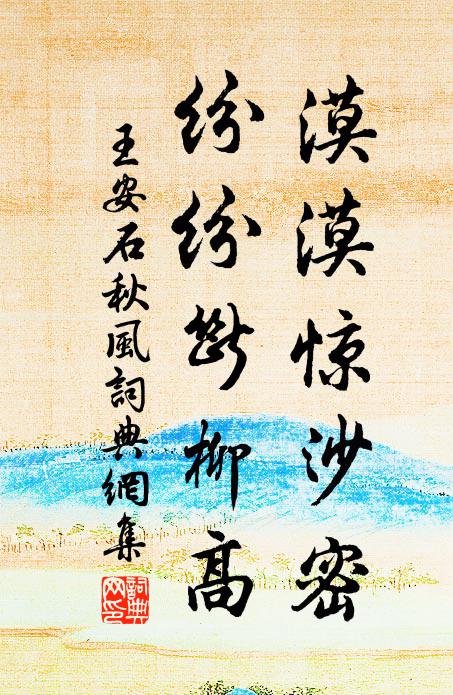 漠漠惊沙密
纷纷断柳高
王安石秋風詞典網集
詞典网印